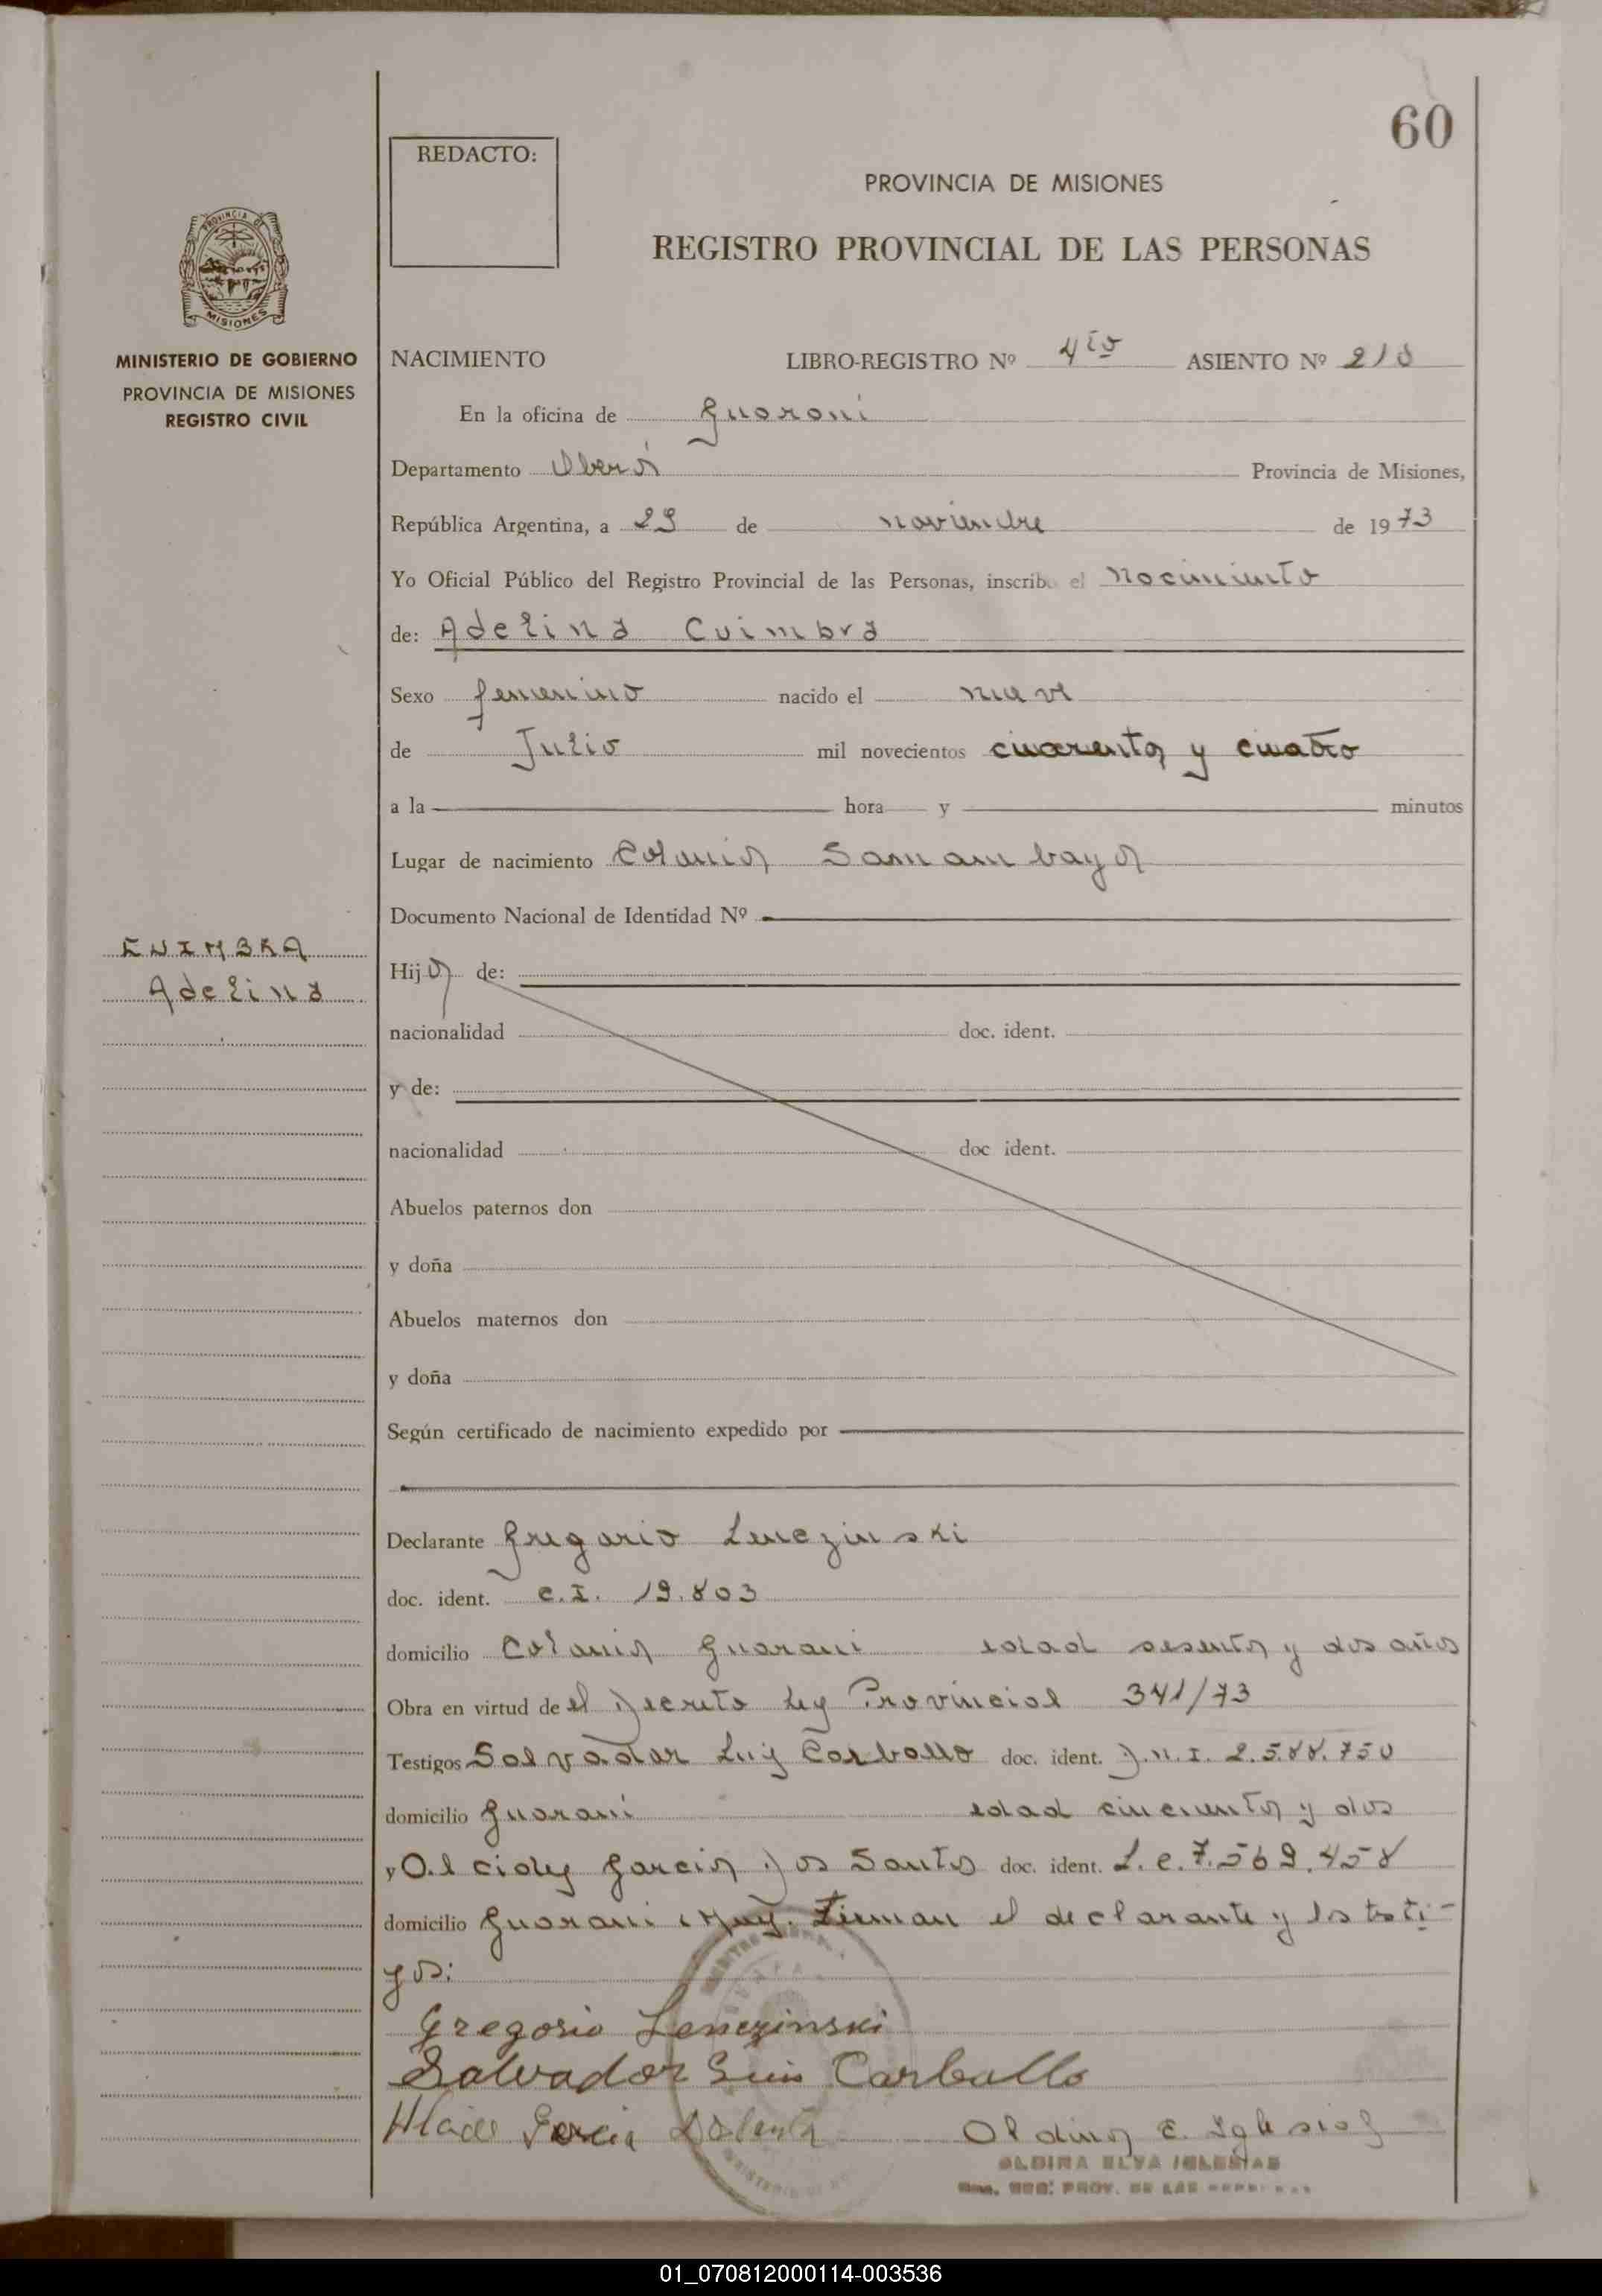 60
REDACTO:
PROVINCIA DE MISIONES
REGISTRO PROVINCIAL DE LAS PERSONAS
PROVINCIA DE
MISIONES
MINISTERIO DE GOBIERNO
PROVINCIA DE MISIONES
REGISTRO CIVIL
NACIMIENTO LIBRO-REGISTRO Nº 4to ASIENTO Nº 210
En la oficina de Guarani
Departamento Oberá Provincia de Misiones,
República Argentina, a 29 de noviembre de 1973
Yo Oficial Público del Registro Provincial de las Personas, inscribo el Nacimiento
de: Adelina Cuimbra
Sexo femenino nacido el nueve
de Julio mil novecientos cuarenta y cuatro
a la hora y minutos
Lugar de nacimiento Colonia Samambaya
Documento Nacional de Identidad Nº
CUIMBRA
Adelina
Hija de:
nacionalidad doc. ident.
y de:
nacionalidad doc ident.
Abuelos paternos don
y doña
Abuelos maternos don
y doña
Según certificado de nacimiento expedido por
Declarante Gregorio Lenczinski
doc. ident. C.I. 19.803
domicilio Colonia Guarani edad sesenta y dos años
Obra en virtud de el Decreto Ley Provincial 341/73
Testigos Salvador Luis Carballo doc. ident. D.N.I. 2.588.750
domicilio Guaraní edad cincuenta y dos
y Alcides Garcia Dos Santos doc. ident. L.e. 7.569.458
domicilio Guarani Firman el declarante y los testi-
gos:
Gregorio Lenczinski
Salvador Luis Carballo
Alcides Garcia Dos Santos Aldina E. Iglesias
ELVA IGLESIAS
REG. PROV. DE LAS
01_070812000114-003536